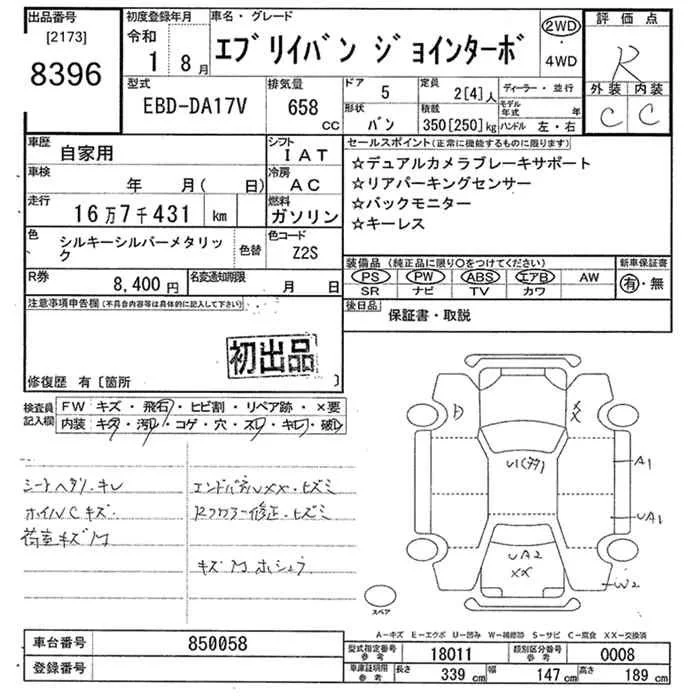 出品番号
[2173]
8396
初度登録年月
令和
1 8月
車名・グレード
エブリイバン ジョインターボ
2WD
・
4WD
評価点
R
外装 内装
C C
型式
EBD-DA17V
排気量
658
CC
ドア
5
定員
2[4]人
形状
バン
積載
350[250]kg
ディーラー・並行
モデル年式 年
ハンドル 左・右
車歴
自家用
シフト
IAT
車検
年 月( 日)
冷房
AC
走行
16万7千431 km
燃料
ガソリン
色
シルキーシルバーメタリック
色替
色コード
Z2S
R券
8,400円
名変通知期限
月 日
セールスポイント(正常に機能するものに限ります)
☆デュアルカメラブレーキサポート
☆リアパーキングセンサー
☆バックモニター
☆キーレス
装備品(純正品に限り○をつけてください)
PS PW ABS エアB AW
SR ナビ TV カワ
新車保証書
有・無
後日品
保証書・取説
注意事項申告欄(不具合内容等は具体的に記入して下さい)
初出品
修復歴 有[箇所 ]
検査員記入欄
FW キズ・飛石・ヒビ割・リペア跡・×要
内装 キズ・汚レ・コゲ・穴・スレ・キレ・破レ
シートヘタリ・キレ
ホイルCキズ・
荷室キズM
エンドパネルXX・ヒズミ
Rフロアー修正・ヒズミ
キズMホシュウ
A1
UA1
UA2
XX
W2
スペア
A-キズ E-エクボ U-凹み W-補修跡 S-サビ C-腐食 XX-交換済
車台番号
850058
登録番号
型式指定番号
参考
18011
類別区分番号
参考
0008
車庫証明用
参考
長さ
339 cm
幅
147 cm
高さ
189 cm